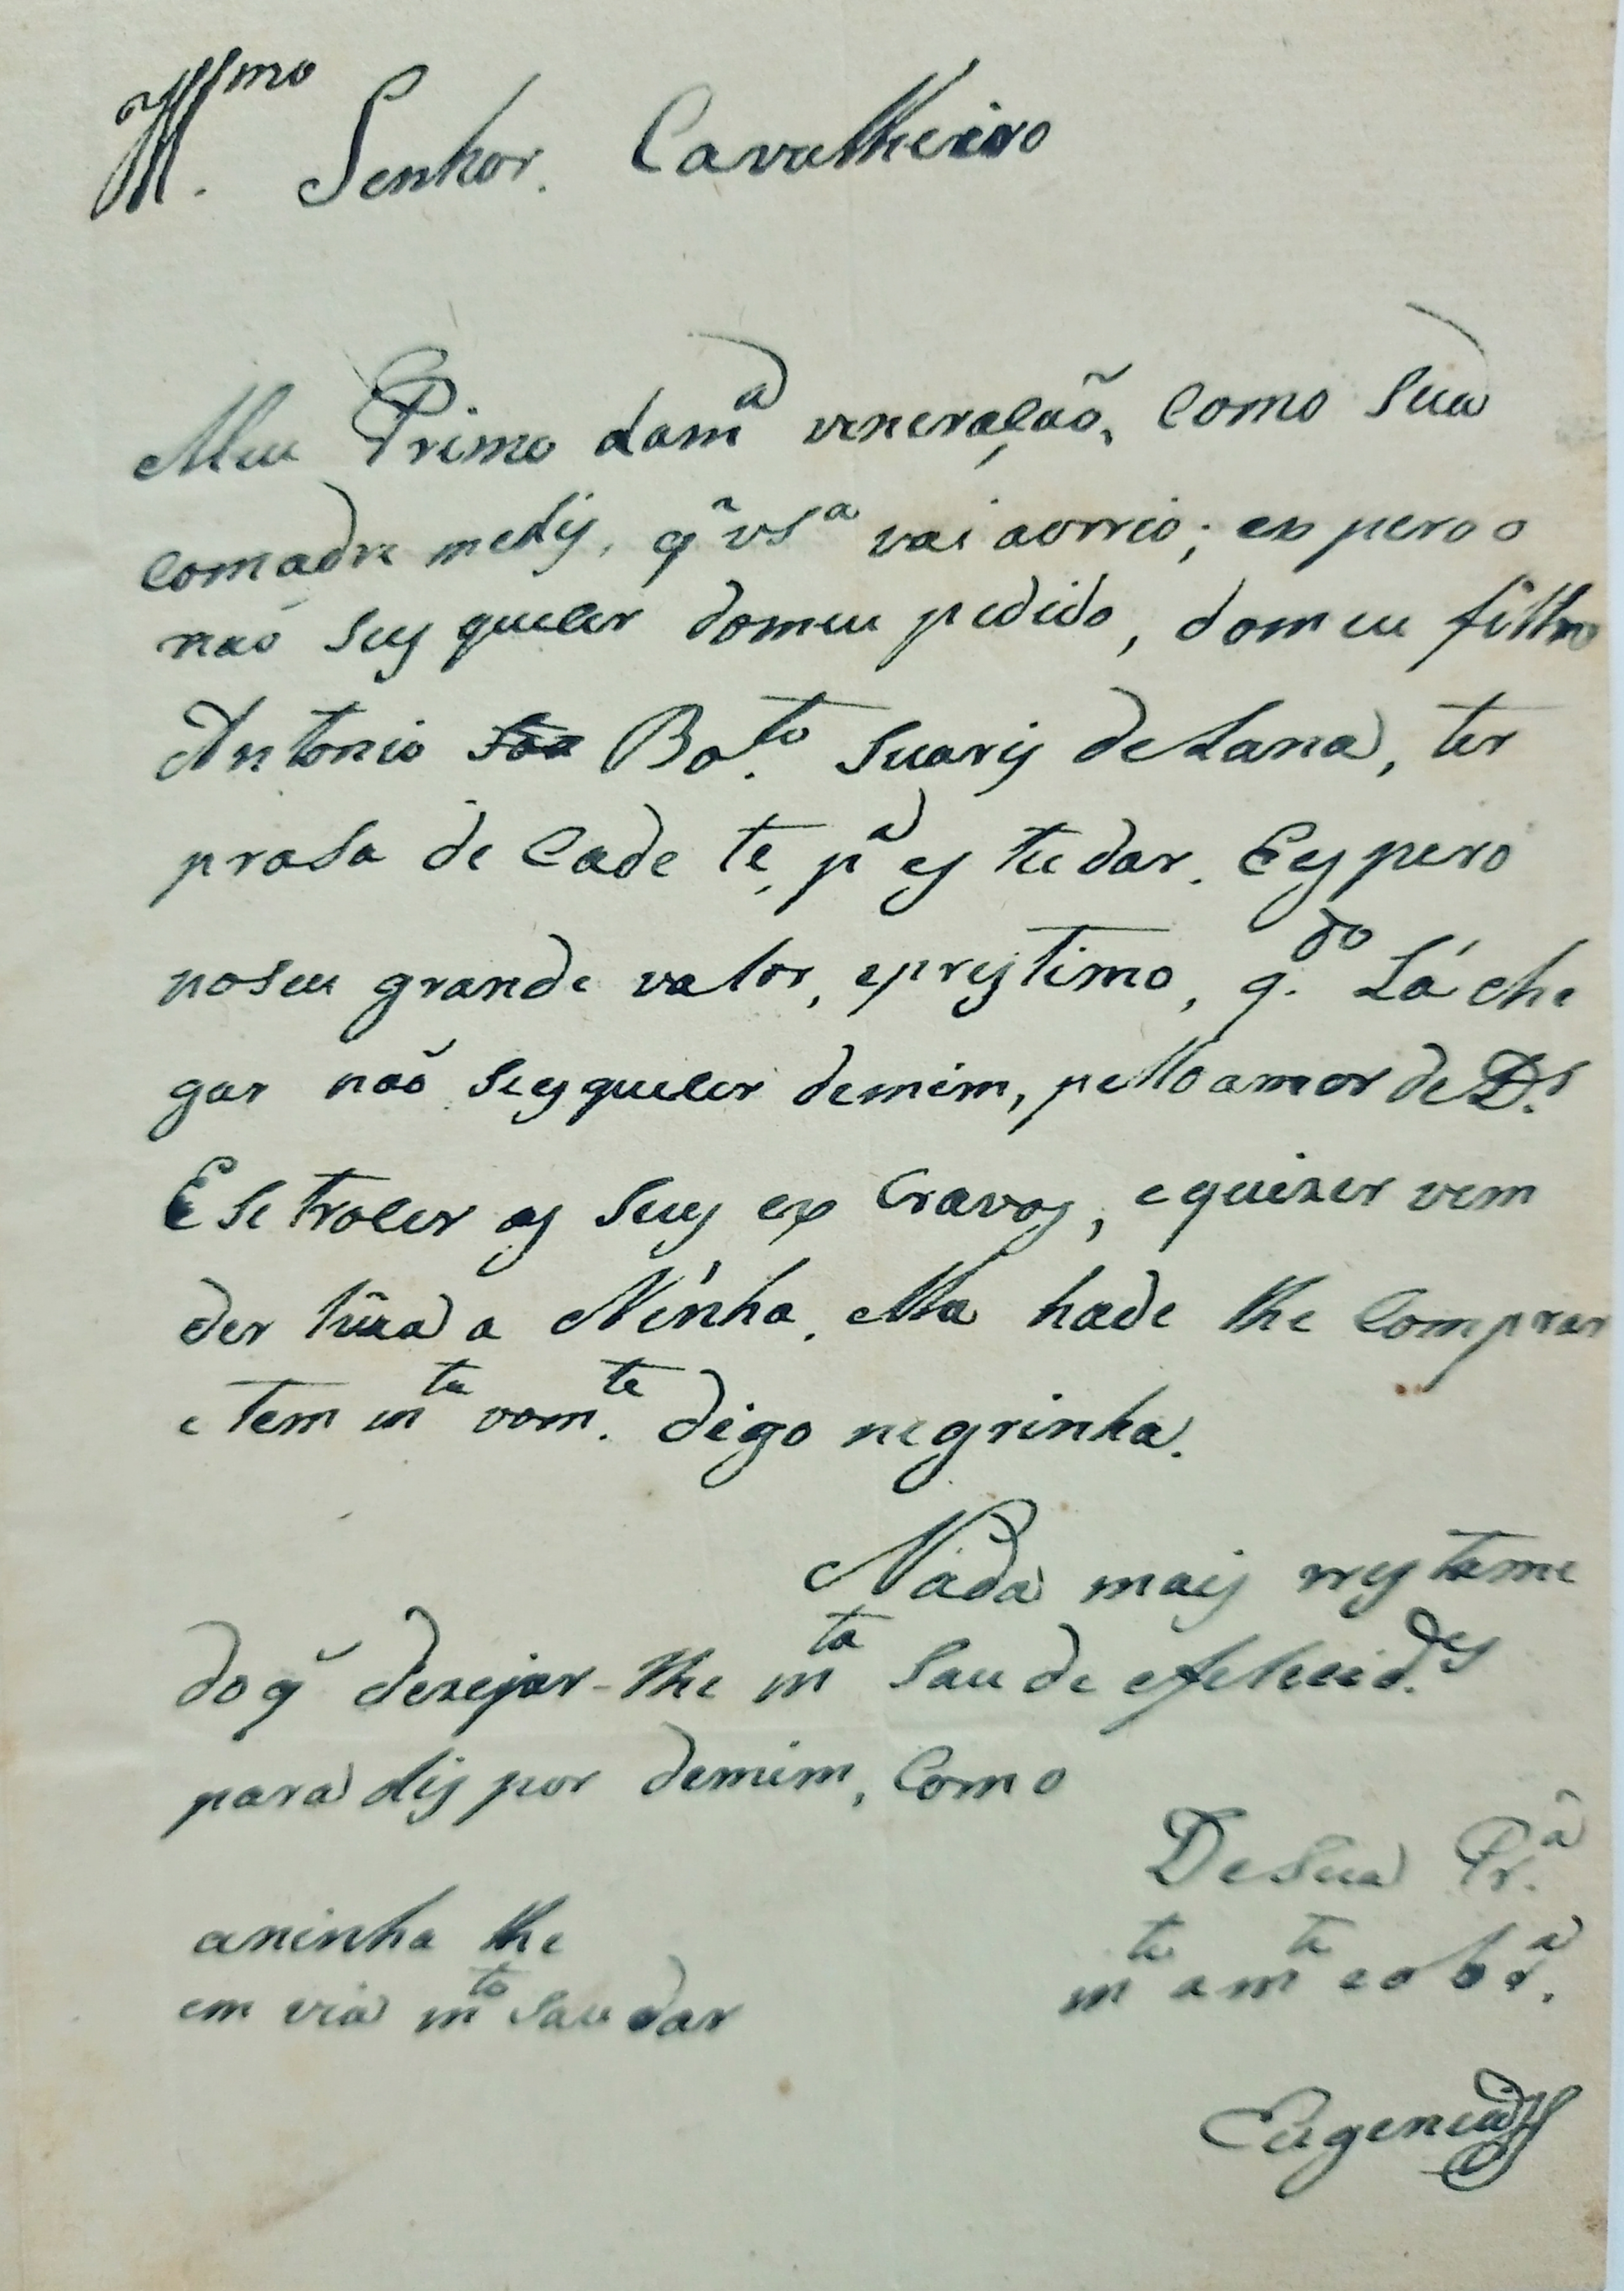 Ill.mo Senhor. Cavalheiro
Meu Primo dam.a veneração, como Sua
comadre medis, q̃ VS.a vai aorrio; espero o
não seys quecer domeu pedido, domeu filho
Antonio Bo.to Suaris deLana, ter
prasa de Cade te, p.a es tu dar. E espero
noseu grande valor, eprestimo, q.do Lá che
gar não seys quecer demim, pello amor de D.s
E se troCer os seus es Cravos, equizer vem
der hũa a Ninha. Ella hade lhe Comprar
e tem m.ta vom.te digo negrinha.
Nada mais rrestame
doq̃ dezejar-lhe m.ta Sau de efelicid.es
para dis por demim, Como
DeSua Pr.a
m.to am.te eobr.a
aninha lhe
em via m.to Sau dar
Eugenia